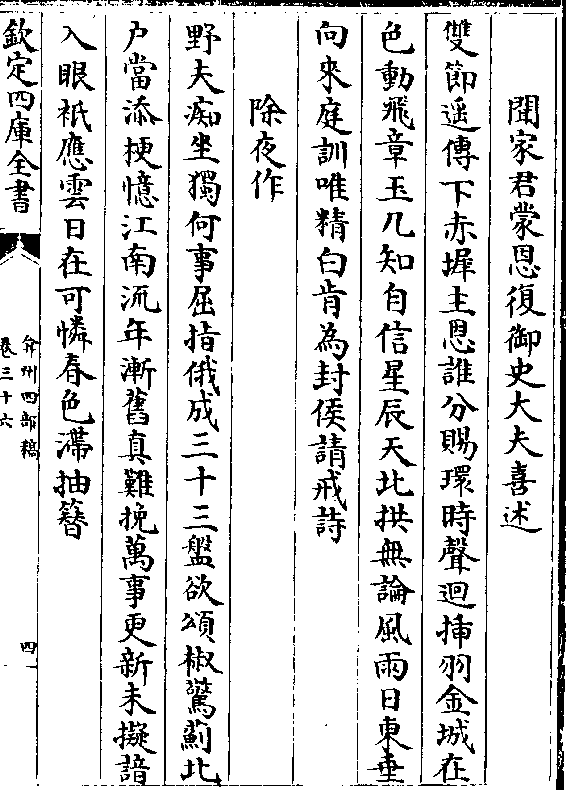 聞家君蒙恩復御史大夫喜述
雙節遥傳下赤墀主恩誰分賜環時聲迴揷羽金城在
色動飛章玉几知自信星辰天北拱無論風雨日東垂
向來庭訓唯精白肯為封侯請戒詩
除夜作
野夫痴坐獨何事屈指俄成三十三盤欲頌椒驚薊北
户當添梗憶江南流年漸舊真難挽萬事更新未擬諳
入眼祇應雲日在可憐春色滯抽簪
欽定四庫全書
弇州四部稿
卷三十六
四